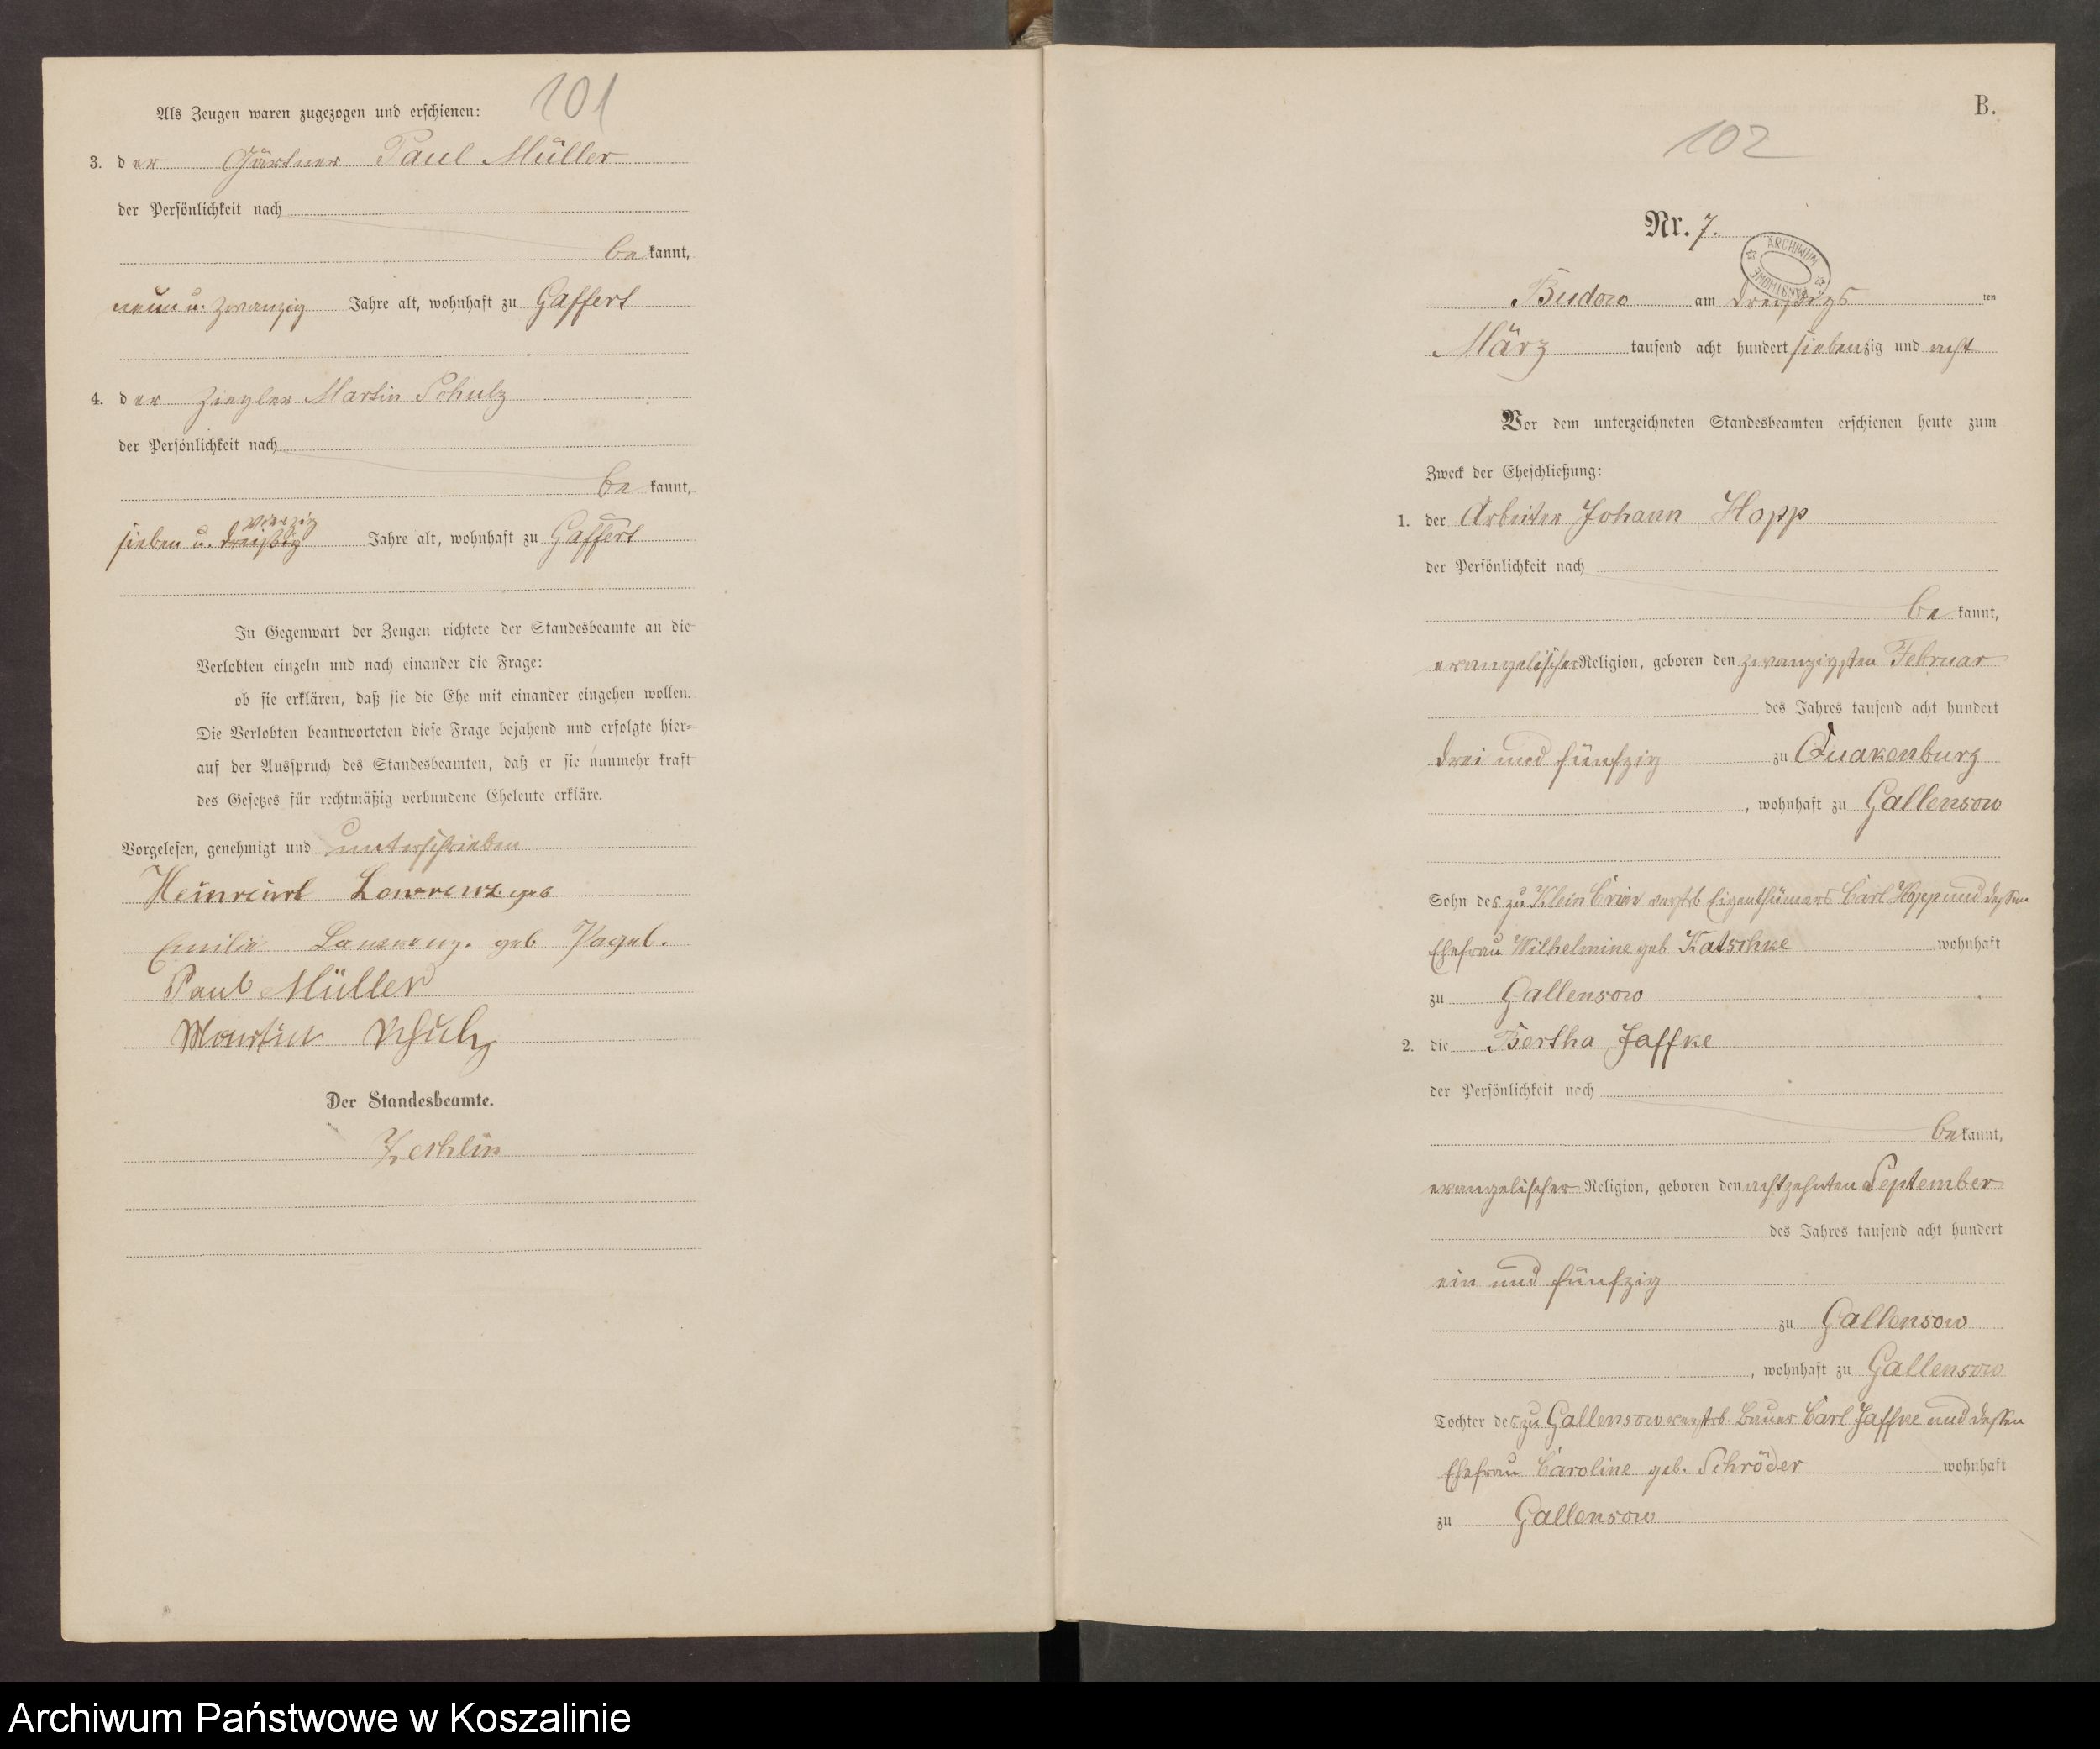 101
Als Zeugen waren zugezogen und erschienen:
3. der Gärtner Paul Müller
der Persönlichkeit nach
bekannt,
neun u. zwanzig Jahre alt, wohnhaft zu Gaffert
4. der Ziegler Martin Schulz
der Persönlichkeit nach
bekannt,
vierzig
sieben u. dreißig Jahre alt, wohnhaft zu Gaffert
In Gegenwart der Zeugen richtete der Standesbeamte an die
Verlobten einzeln und nach einander die Frage:
ob sie erklären, daß sie die Ehe mit einander eingehen wollen.
Die Verlobten beantworteten diese Frage bejahend und erfolgte hier-
auf der Ausspruch des Standesbeamten, daß er sie nunmehr kraft
des Gesetzes für rechtmäßig verbundene Eheleute erkläre.
Vorgelesen, genehmigt und unterschrieben
Emilie geb Pagel.
Paul Müller
Martin Schulz
Der Standesbeamte.
B.
102
Nr. 7.
ARCHIWUM
Budow am dreißigs ten
März tausend acht hundert siebenzig und acht
Vor dem unterzeichneten Standesbeamten erschienen heute zum
Zweck der Eheschließung:
1. der Arbeiter Johann Hopp
der Persönlichkeit nach
bekannt,
evangelischer Religion, geboren den zwanzigsten Februar
des Jahres tausend acht hundert
drei und fünfzig zu Quakenburg
, wohnhaft zu Gallensow
Sohn des zu Klein verstb Eigenthümers Carl Hopp und dessen
Ehefrau Wilhelmine geb Katschke wohnhaft
zu Gallensow
2. die Bertha Jaffke
der Persönlichkeit nach
bekannt,
evangelischer Religion, geboren den achtzehnten September
des Jahres tausend acht hundert
ein und fünfzig
zu Gallensow
, wohnhaft zu Gallensow
Tochter des zu Gallensow verstb. Bauer Carl Jaffke und dessen
Ehefrau Caroline geb. Schröder wohnhaft
zu Gallensow
Archiwum Państwowe w Koszalinie